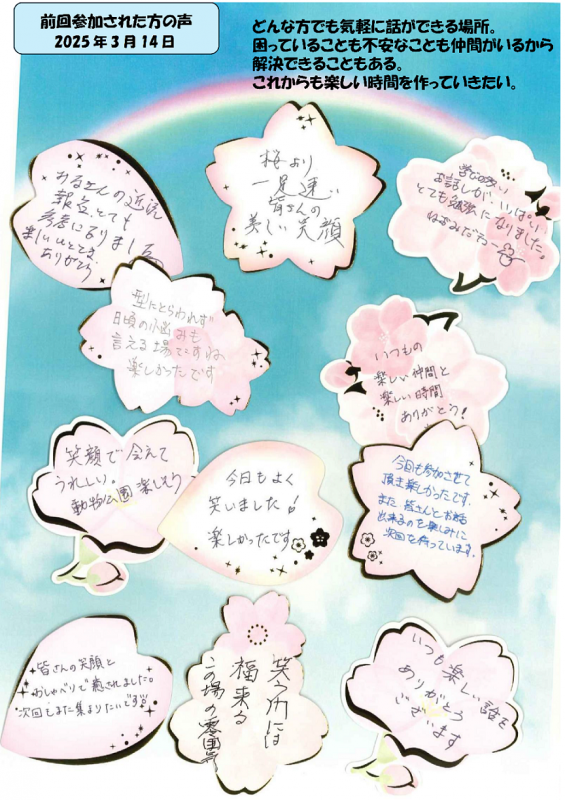 前回参加された方の声
2025年3月14日
どんな方でも気軽に話ができる場所。
困っていることも不安なことも仲間がいるから
解決できることもある。
これからも楽しい時間を作っていきたい。
わるさんの近況
報告、とても
参考になりました
楽しいひととき
ありがとう
桜より
一足速い
皆さんの
美しい笑顔
お話しが、いっぱい
とても勉強になりました。
型にとらわれず
日頃の小悩みも
言える場ですね
楽しかったです
いつもの
楽しい仲間と
楽しい時間
ありがとう!
笑顔で会えて
うれしい。
動物公園楽しもう
今日もよく
笑いました!
楽しかったです
今日も参加させて
頂き楽しかったです.
また、皆さんとお話
出来るのを楽しみに
次回を待っています.
皆さんの笑顔と
おしゃべりで癒されました。
次回もまた集まりたいです
笑う所には
福来る
この場の雰囲気
いつも楽しい話を
ありがとう
ございます